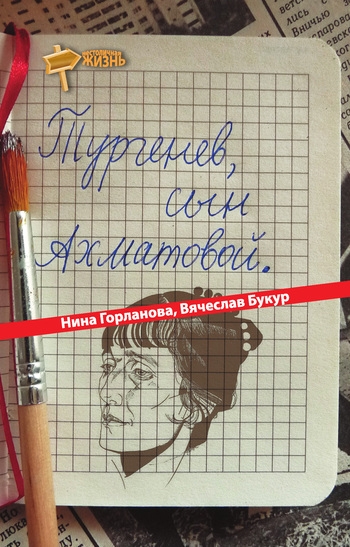 нестоличная
ЖИЗНЬ
лись с
Вничью
Тургенев,
сын
Ахматовой.
Нина Горланова, Вячеслав Букур
Но